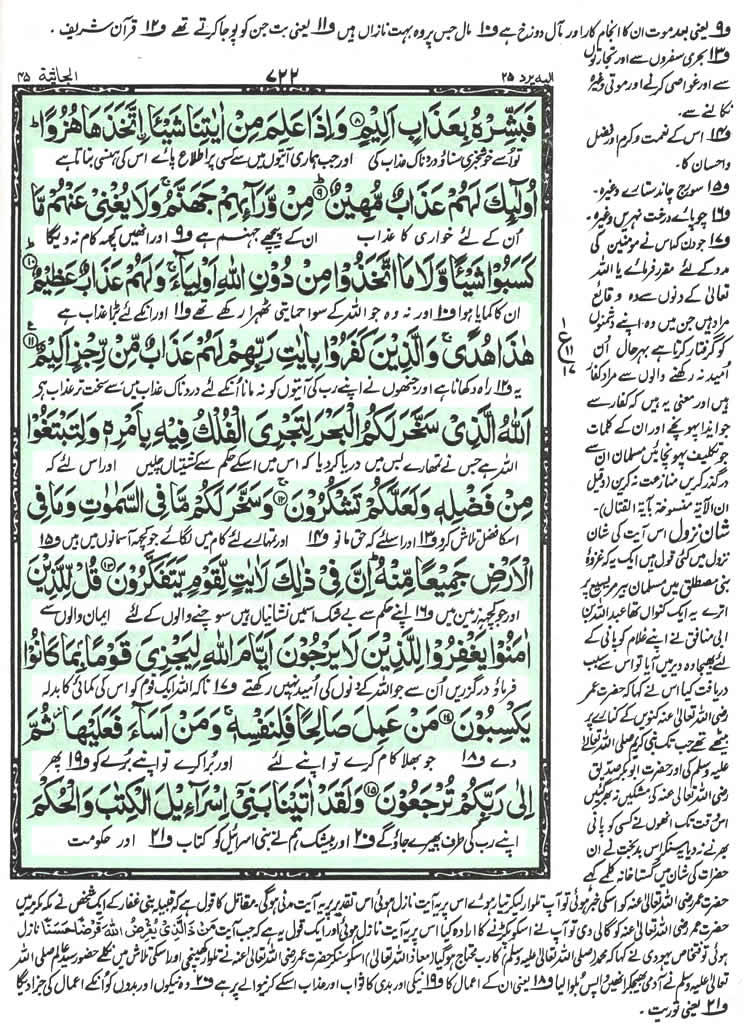 و۹ یعنی بعد موت ان کا انجام کار اور مآل دوزخ ہے و۱۰ مال جس پر وہ بہت نازاں ہیں و۱۱ یعنی بت جن کو پوجا کرتے تھے و۱۲ قرآن شریف ۔
الیہ یرد ۲۵
۷۲۲
الجاثیة ۴۵
فَبَشِّرْهُ بِعَذَابٍ اَلِیْمٍ ۸ وَ اِذَا عَلِمَ مِنْ اٰیٰتِنَا شَیْـًٔا اتَّخَذَهَا هُزُوًا ؕ
تو اسے خوشخبری سناؤ دردناک عذاب کی اور جب ہماری آیتوں میں سے کسی پر اطلاع پائے اس کی ہنسی بناتا ہے
اُولٰٓىِٕكَ لَهُمْ عَذَابٌ مُّهِیْنٌ ۹ؕ مِنْ وَّرَآىِٕهِمْ جَهَنَّمُ ۚ وَ لَا یُغْنِیْ عَنْهُمْ مَّا
اُن کے لئے خواری کا عذاب ان کے پیچھے جہنم ہے و۹ اور انھیں کچھ کام نہ دیگا
كَسَبُوْا شَیْـًٔا وَّ لَا مَا اتَّخَذُوْا مِنْ دُوْنِ اللّٰهِ اَوْلِیَآءَ ۚ وَ لَهُمْ عَذَابٌ عَظِیْمٌ ۱۰ؕ
ان کا کمایا ہوا و۱۰ اور نہ وہ جو اللہ کے سوا حمایتی ٹھہرا رکھے تھے و۱۱ اور انکے لئے بڑا عذاب ہے
هٰذَا هُدًى ۚ وَ الَّذِیْنَ كَفَرُوْا بِاٰیٰتِ رَبِّهِمْ لَهُمْ عَذَابٌ مِّنْ رِّجْزٍ اَلِیْمٌ ۱۱
یہ و۱۲ راہ دکھانا ہے اور جنھوں نے اپنے رب کی آیتوں کو نہ مانا اُنکے لئے دردناک عذاب میں سے سخت تر عذاب ہے
اَللّٰهُ الَّذِیْ سَخَّرَ لَكُمُ الْبَحْرَ لِتَجْرِیَ الْفُلْكُ فِیْهِ بِاَمْرِهٖ وَ لِتَبْتَغُوْا
اللہ ہے جس نے تمھارے بس میں دریا کر دیا کہ اس میں اسکے حکم سے کشتیاں چلیں اور اس لئے کہ
مِنْ فَضْلِهٖ وَ لَعَلَّكُمْ تَشْكُرُوْنَ ۱۲ۚ وَ سَخَّرَ لَكُمْ مَّا فِی السَّمٰوٰتِ وَ مَا فِی
اسکا فضل تلاش کرو و۱۳ اور اسلئے کہ حق مانو و۱۴ اور تمہارے لئے کام میں لگائے جو کچھ آسمانوں میں ہیں و۱۵
الْاَرْضِ جَمِیْعًا مِّنْهُ ؕ اِنَّ فِیْ ذٰلِكَ لَاٰیٰتٍ لِّقَوْمٍ یَّتَفَكَّرُوْنَ ۱۳ قُلْ لِّلَّذِیْنَ
اور جو کچھ زمین میں و۱۶ اپنے حکم سے بے شک اسمیں نشانیاں ہیں سوچنے والوں کے لئے ایمان والوں سے
اٰمَنُوْا یَغْفِرُوْا لِلَّذِیْنَ لَا یَرْجُوْنَ اَیَّامَ اللّٰهِ لِیَجْزِیَ قَوْمًۢا بِمَا كَانُوْا
فرماؤ درگزریں اُن سے جو اللہ کے دنوں کی اُمید نہیں رکھتے و۱۷ تاکہ اللہ ایک قوم کو اس کی کمائی کا بدلہ
یَكْسِبُوْنَ ۱۴ مَنْ عَمِلَ صَالِحًا فَلِنَفْسِهٖ ۚ وَ مَنْ اَسَآءَ فَعَلَیْهَا ؗ ثُمَّ
دے و۱۸ جو بھلا کام کرے تو اپنے لئے اور بُرا کرے تو اپنے بُرے کو و۱۹ پھر
اِلٰى رَبِّكُمْ تُرْجَعُوْنَ ۱۵ وَ لَقَدْ اٰتَیْنَا بَنِیْۤ اِسْرَآءِیْلَ الْكِتٰبَ وَ الْحُكْمَ
اپنے رب کی طرف پھیرے جاؤ گے و۲۰ اور بیشک ہم نے بنی اسرائیل کو کتاب و۲۱ اور حکومت
و۱۳ بحری سفروں سے اور تجارتوں
سے اور غواصی کرنے اور موتی وغیرہ
نکالنے سے۔
و۱۴ اس کے نعمت و کرم اور فضل
و احسان کا۔
و۱۵ سورج چاند ستارے وغیرہ۔
و۱۶ چوپائے درخت نہریں وغیرہ۔
و۱۷ جو دن کہ اس نے مؤمنین کی
مدد کے لئے مقرر فرمائے یا اللہ
تعالیٰ کے دنوں سے وہ وقائع
مراد ہیں جن میں وہ اپنے دشمنوں
کو گرفتار کرتا ہے بہرحال اُن
اُمید نہ رکھنے والوں سے مراد کفار
ہیں اور معنی یہ ہیں کہ کفار سے
جو ایذا پہونچے اور ان کے کلمات
جو تکلیف پہونچائیں مسلمان ان سے
درگذر کریں منازعت نہ کریں (وقیل
ان الآیة منسوخة بآیة القتال)۔
شان نزول اس آیت کی شان
نزول میں کئی قول ہیں ایک یہ کہ غزوۂ
بنی مصطلق میں مسلمان بیر مریسیع پر
اترے یہ ایک کنواں تھا عبداللہ بن
ابی منافق نے اپنے غلام کو پانی کے
لئے بھیجا وہ دیر میں آیا تو اس سے سبب
دریافت کیا اس نے کہا کہ حضرت عمر
رضی اللہ تعالیٰ عنہ کنویں کے کنارے پر
بیٹھے تھے جب تک نبی کریم صلی اللہ تعالیٰ
علیہ وسلم کی اور حضرت ابوبکر صدیق
رضی اللہ تعالیٰ عنہ کی مشکیں نہ بھر گئیں
اس وقت تک انھوں نے کسی کو پانی
بھرنے نہ دیا یہ سنکر اس بدبخت نے ان
حضرات کی شان میں گستاخانہ کلمے کہے
۱
ع
۱۱
۱۷
حضرت عمر رضی اللہ تعالیٰ عنہ کو اسکی خبر ہوئی تو آپ تلوار لیکر تیار ہوئے اس پر یہ آیت نازل ہوئی اس تقدیر پر یہ آیت مدنی ہوگی۔ مقاتل کا قول ہے کہ قبیلہ بنی غفار کے ایک شخص نے مکہ مکرمہ میں
حضرت عمر رضی اللہ تعالیٰ عنہ کو گالی دی تو آپ نے اسکو پکڑنے کا ارادہ کیا اس پر یہ آیت نازل ہوئی اور ایک قول یہ ہے کہ جب آیت مَنْ ذَا الَّذِیْ یُقْرِضُ اللّٰهَ قَرْضًا حَسَنًا نازل
ہوئی تو فنحاص یہودی نے کہا کہ محمد (صلی اللہ تعالیٰ علیہ وسلم) کا رب محتاج ہوگیا (معاذ اللہ تعالیٰ) اسکو سنکر حضرت عمر رضی اللہ تعالیٰ عنہ نے تلوار کھینچی اور اسکی تلاش میں نکلے حضور سید عالم صلی اللہ
تعالیٰ علیہ وسلم نے آدمی بھیجکر انھیں واپس بلوالیا و۱۸ یعنی ان کے اعمال کا و۱۹ نیکی اور بدی کا ثواب اور عذاب اسکے کرنیوالے پر ہے و۲۰ وہ نیکوں اور بدوں کو اُنکے اعمال کی جزا دیگا
و۲۱ یعنی توریت۔